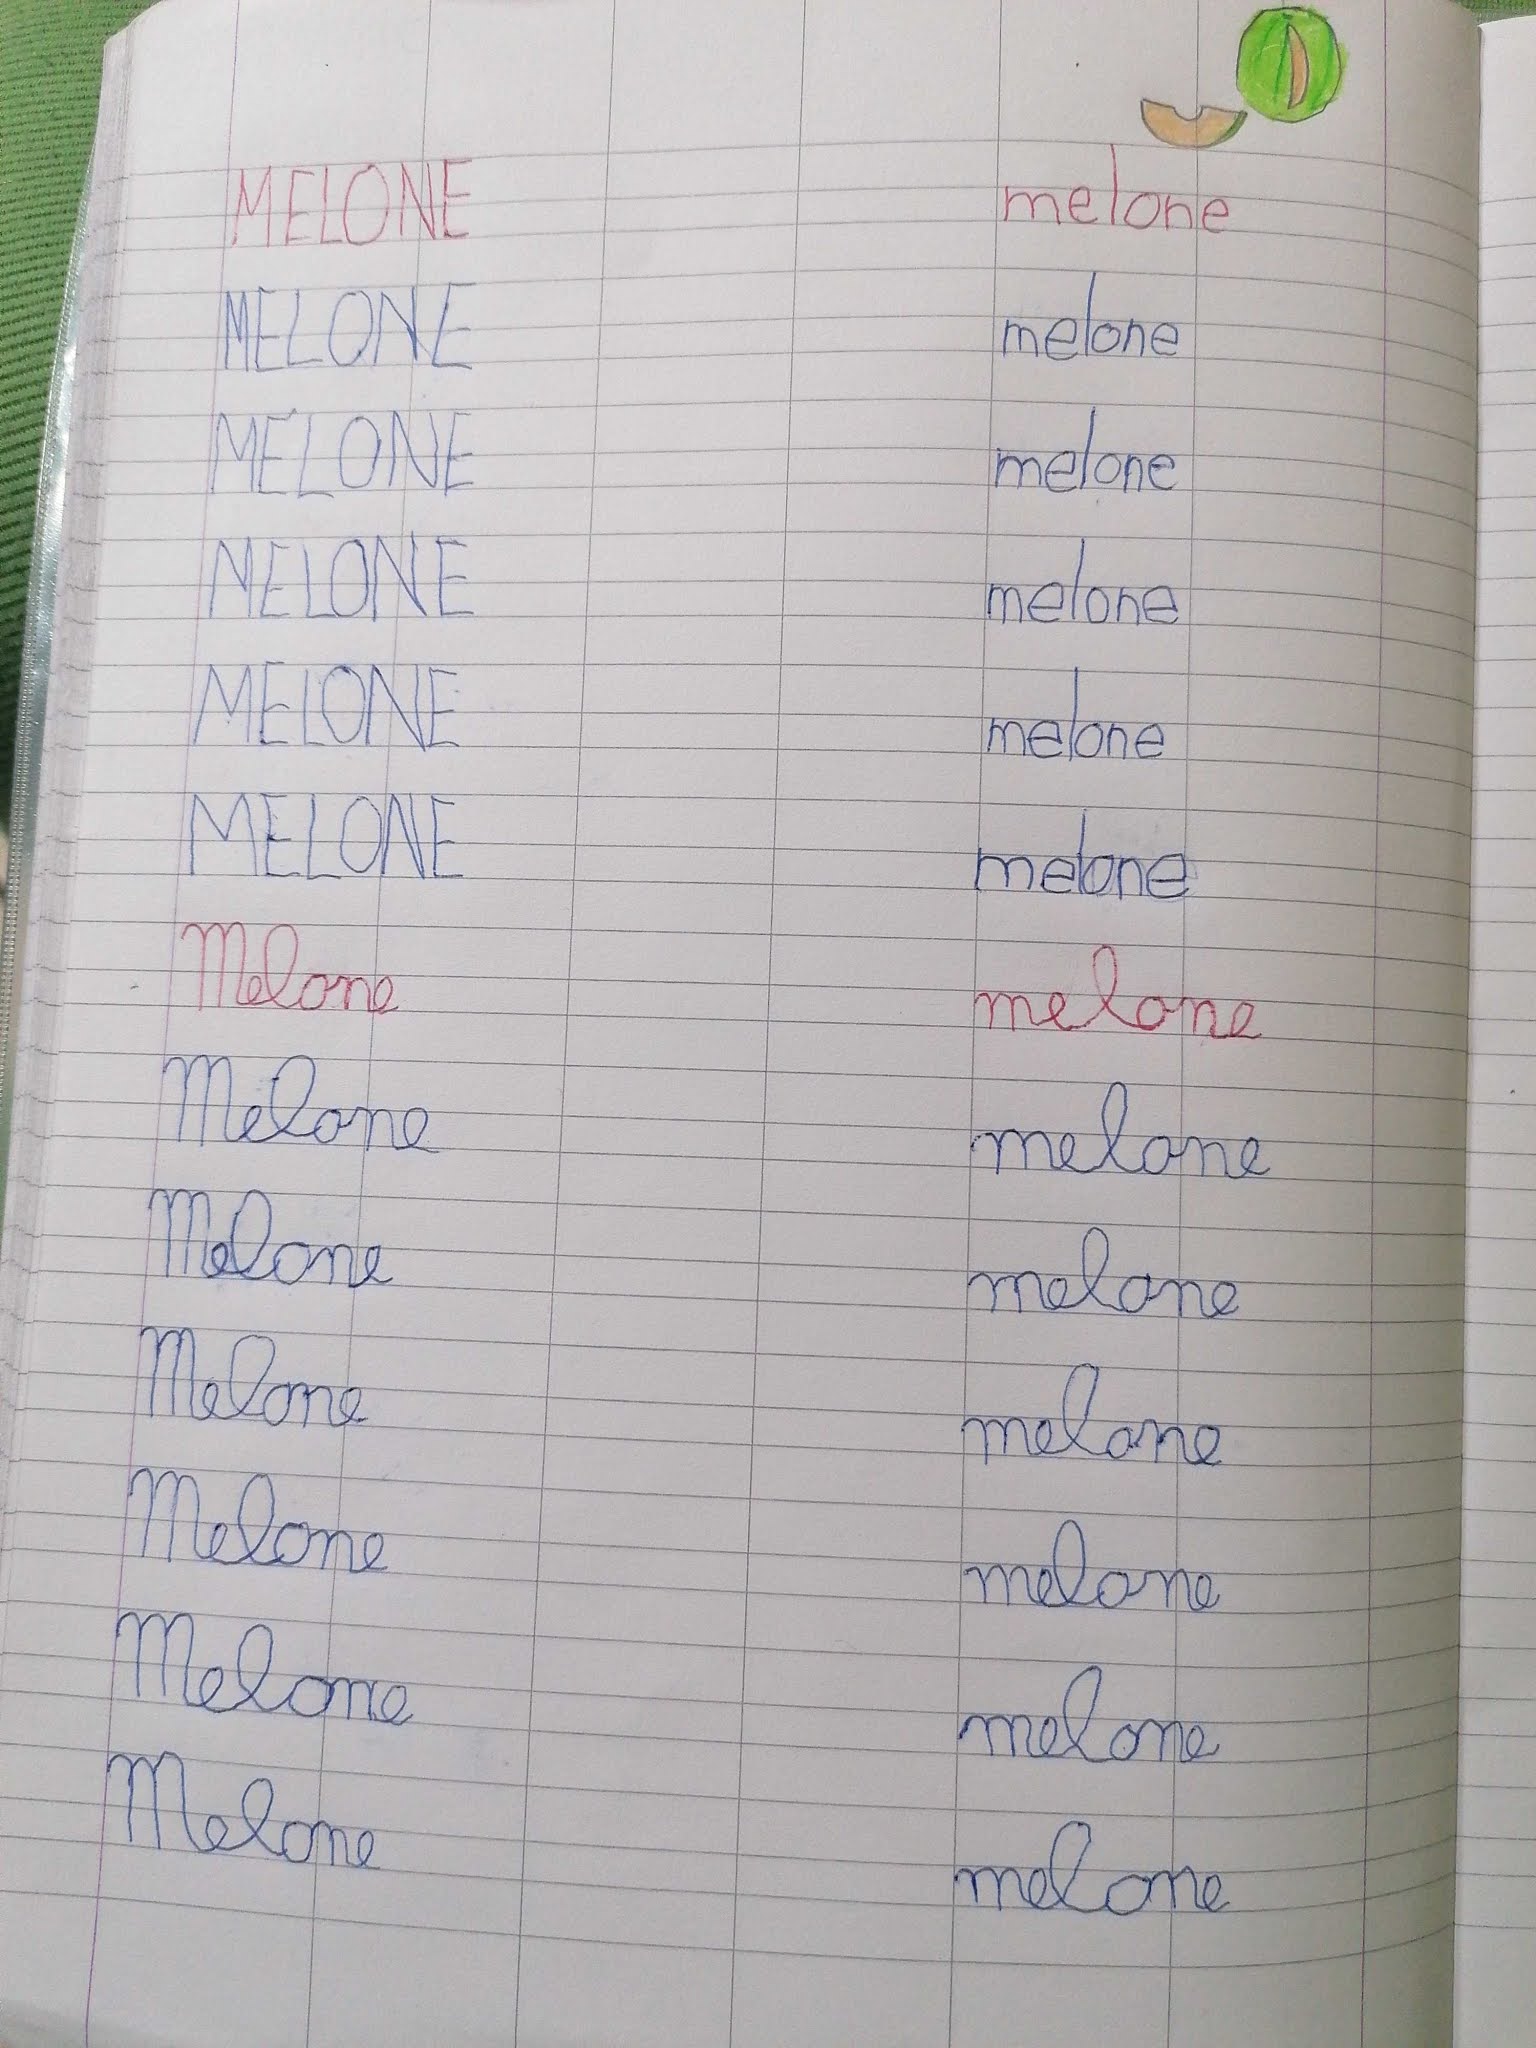 MELONE melone
MELONE melone
MELONE melone
MELONE melone
MELONE melone
MELONE melone
Melone melone
Melone melone
Melone melone
Melone melone
Melone melone
Melone melone
Melone melone